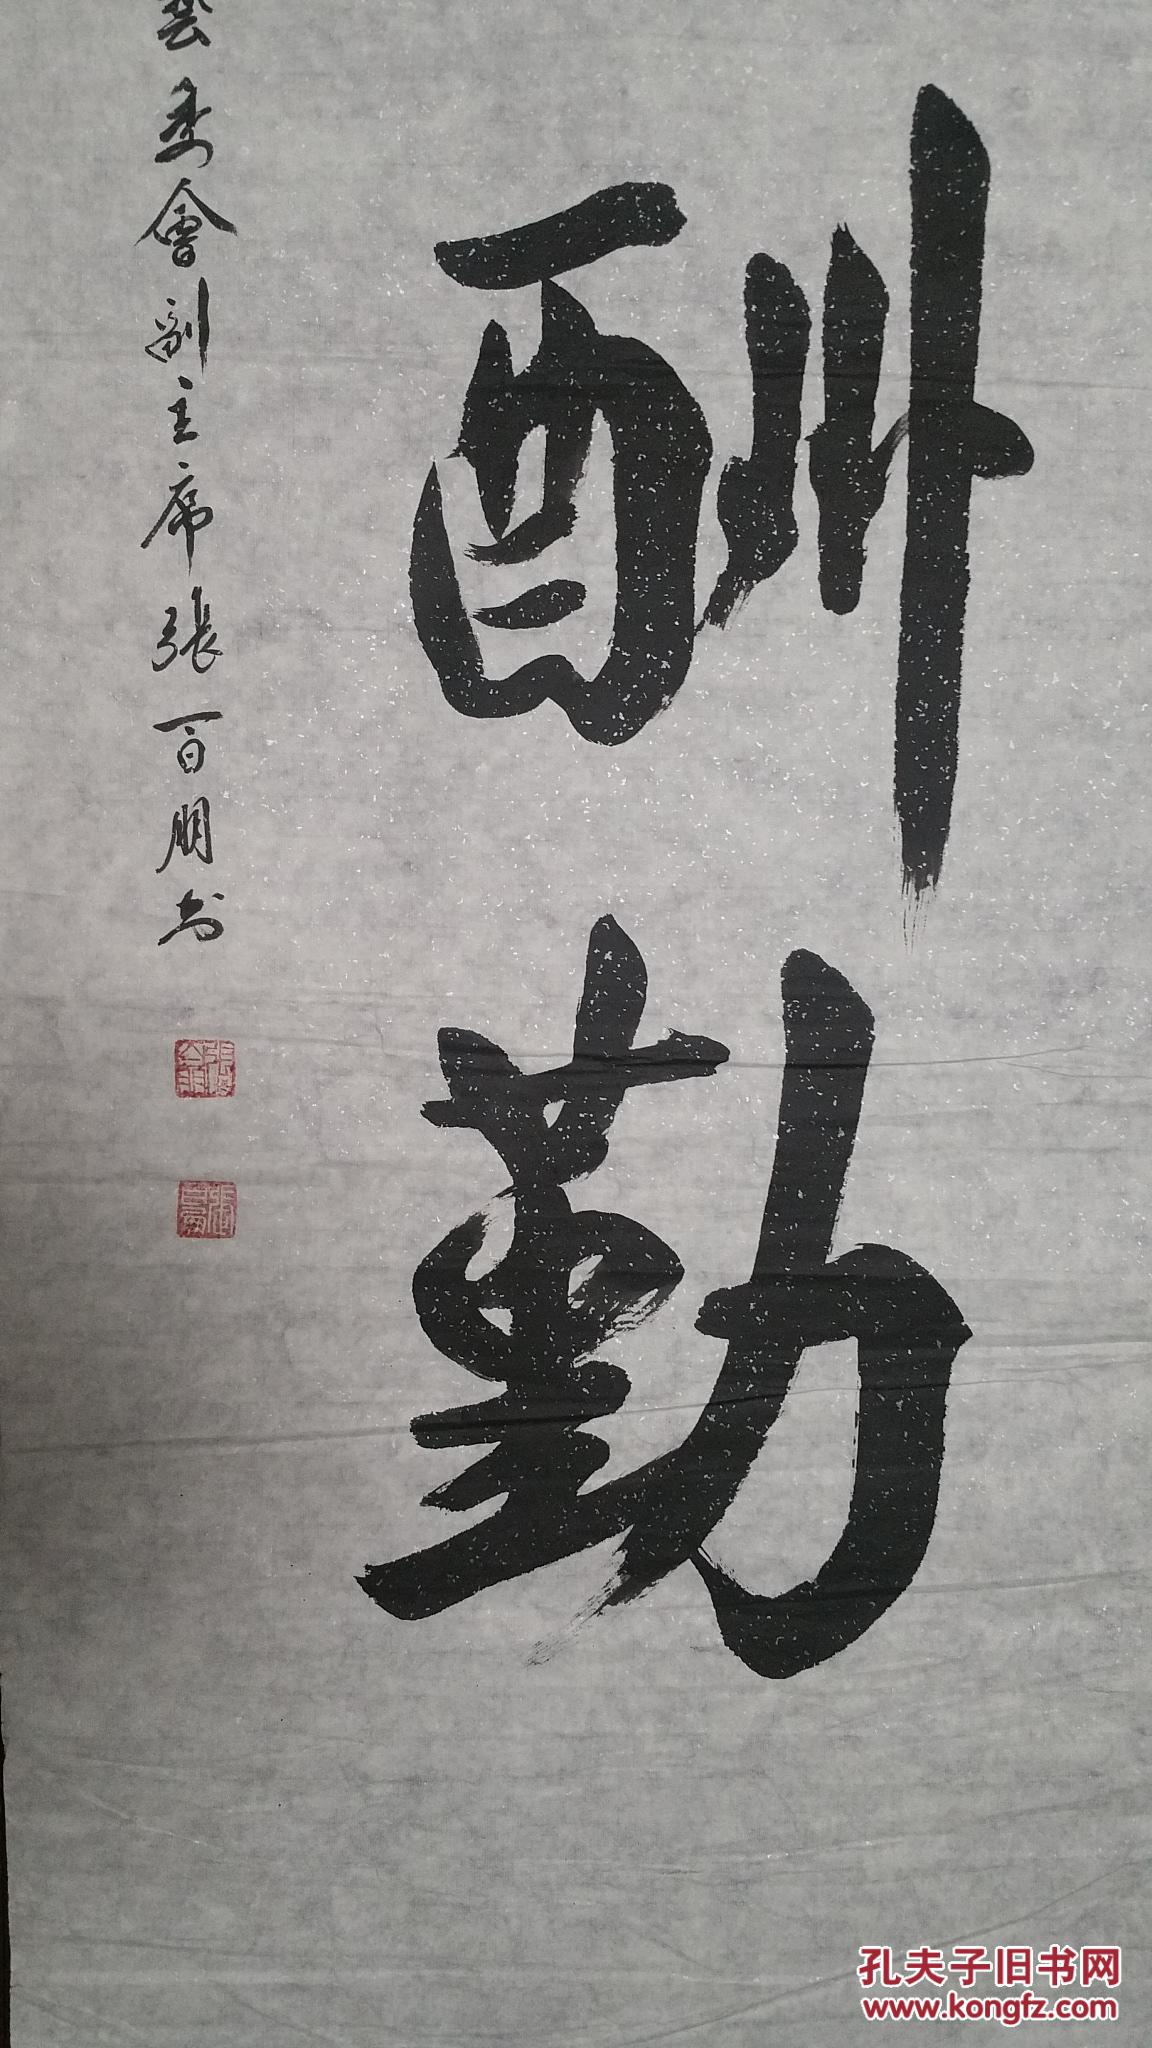 酬勤
藝委會副主席張百朋书
孔夫子旧书网
www.kongfz.com